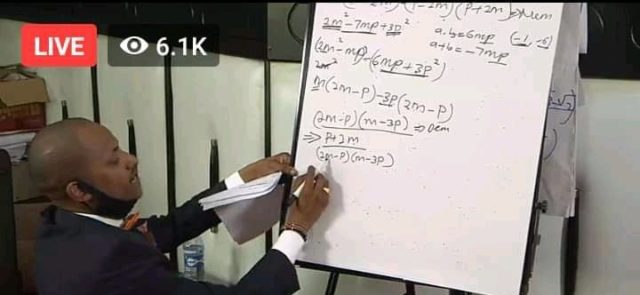 LIVE 6.1K
2m² - 7mp + 3p²
a.b = 6mp (-1, -6)
a+b = -7mp
(2m² - mp) - (6mp + 3p²)
m(2m-p) - 3p(2m-p)
(2m-p)(m-3p) ⇒ Dem
⇒ p+3m
(2m-p)(m-3p)